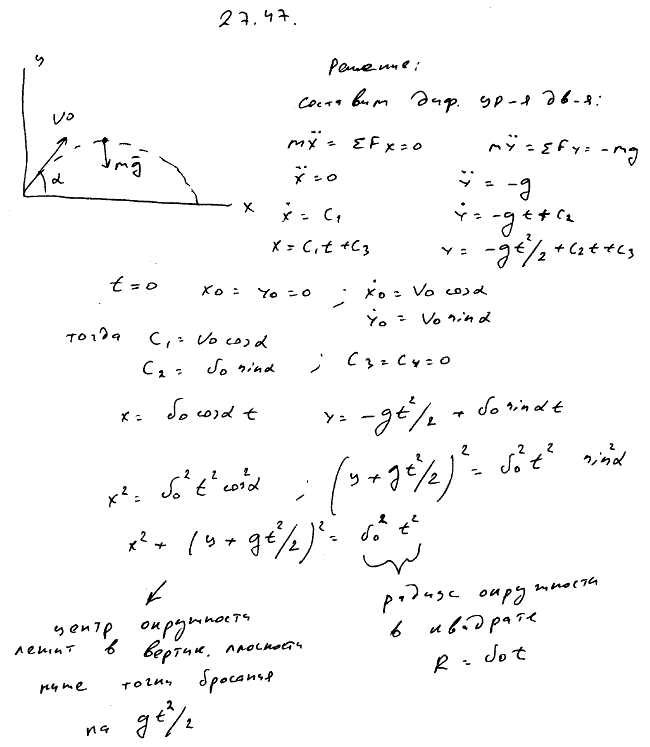 27.47.
Решение:
y
V0
α
mg̅
x
составим диф. ур-я дв-я:
mẍ = ΣFx = 0    mÿ = ΣFy = -mg
ẍ = 0    ÿ = -g
ẋ = C₁    ẏ = -gt + C₂
x = C₁t + C₃    y = -gt²/2 + C₂t + C₃
t = 0    x0 = y0 = 0 ; ẋ0 = V0 cosα
ẏ0 = V0 sinα
тогда C₁ = V0 cosα
C₂ = V0 sinα ; C₃ = C₄ = 0
x = V0 cosα t    y = -gt²/2 + V0 sinα t
x² = V0² t² cos²α ; (y + gt²/2)² = V0² t² sin²α
x² + (y + gt²/2)² = V0² t²
центр окружности
лежит в вертик. плоскости
ниже точки бросания
на gt²/2
радиус окружности
в квадрате
R = V0t